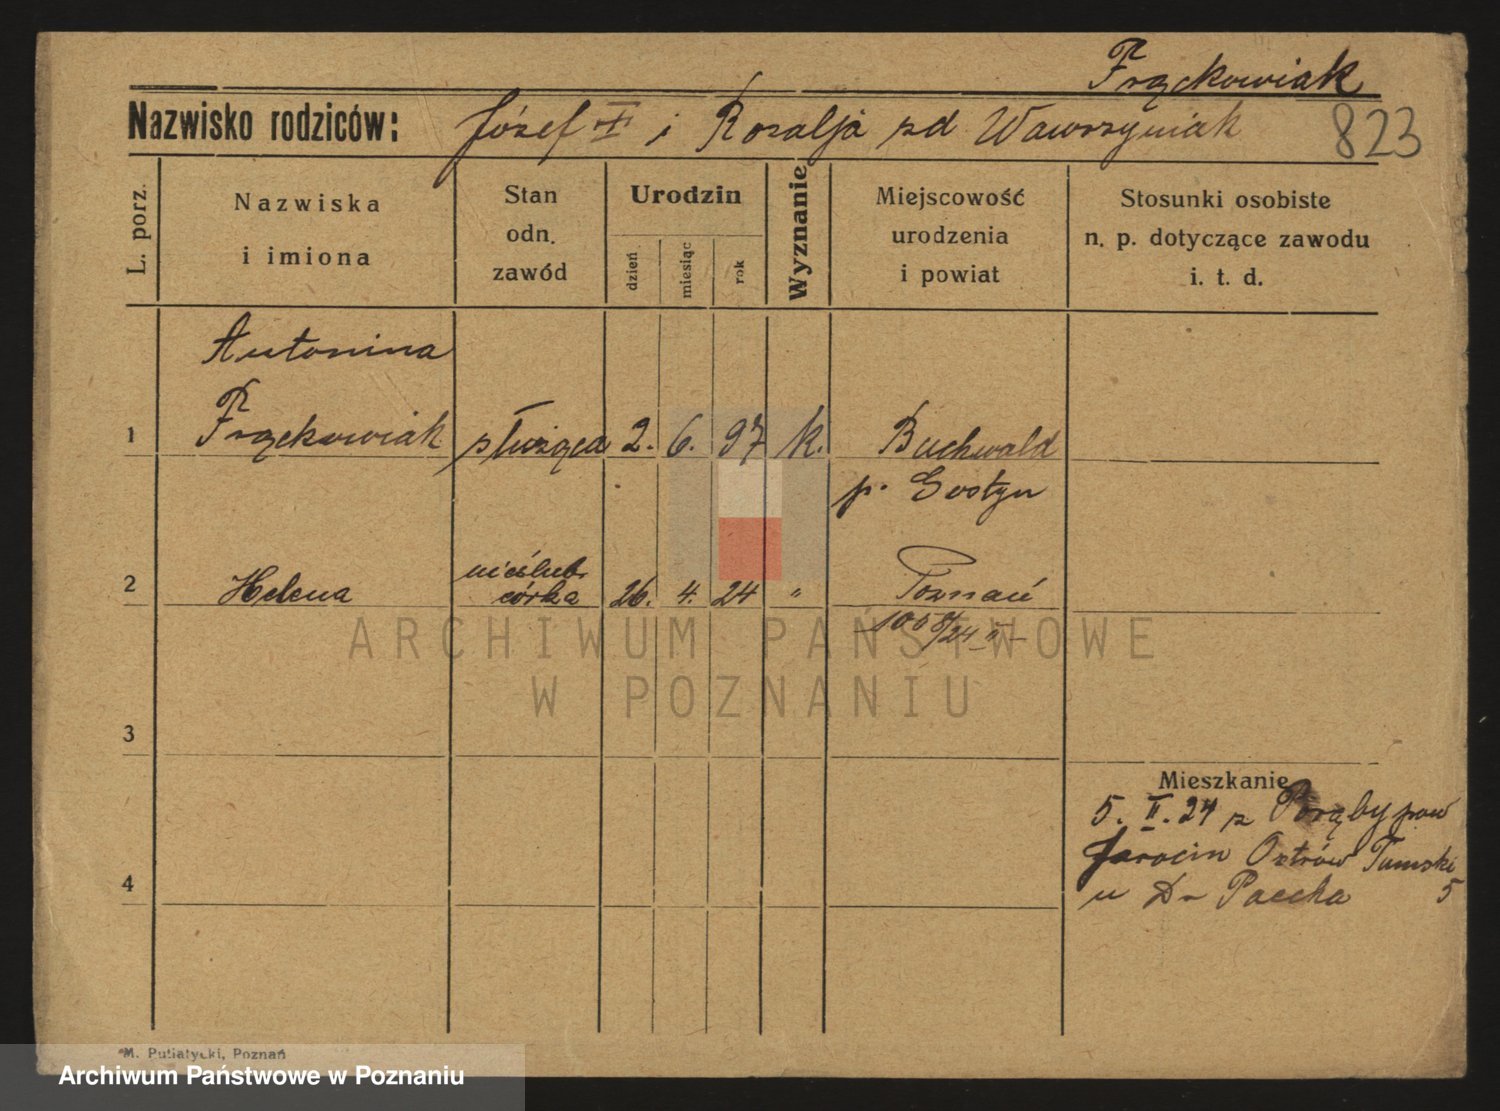 Frąckowiak
Nazwisko rodziców: Józef + i Rozalja zd Wawrzyniak 823
L. porz.
Nazwiska
i imiona
Stan
odn.
zawód
Urodzin
dzień
miesiąc
rok
Wyznanie
Miejscowość
urodzenia
i powiat
Stosunki osobiste
n. p. dotyczące zawodu
i. t. d.
Antonina
1 Frąckowiak służąca 2. 6. 97 k. Buchwald
p. Gostyn
nieślub.
2 Helena córka 26. 4. 24 " Poznań
1008/24 II
ARCHIWUM PAŃSTWOWE
W POZNANIU
3
Mieszkanie
5. II. 24 z Poręby pow
Jarocin Ostrów Tumski
4 u Dr Paecha 5
M. Putiatycki, Poznań
Archiwum Państwowe w Poznaniu